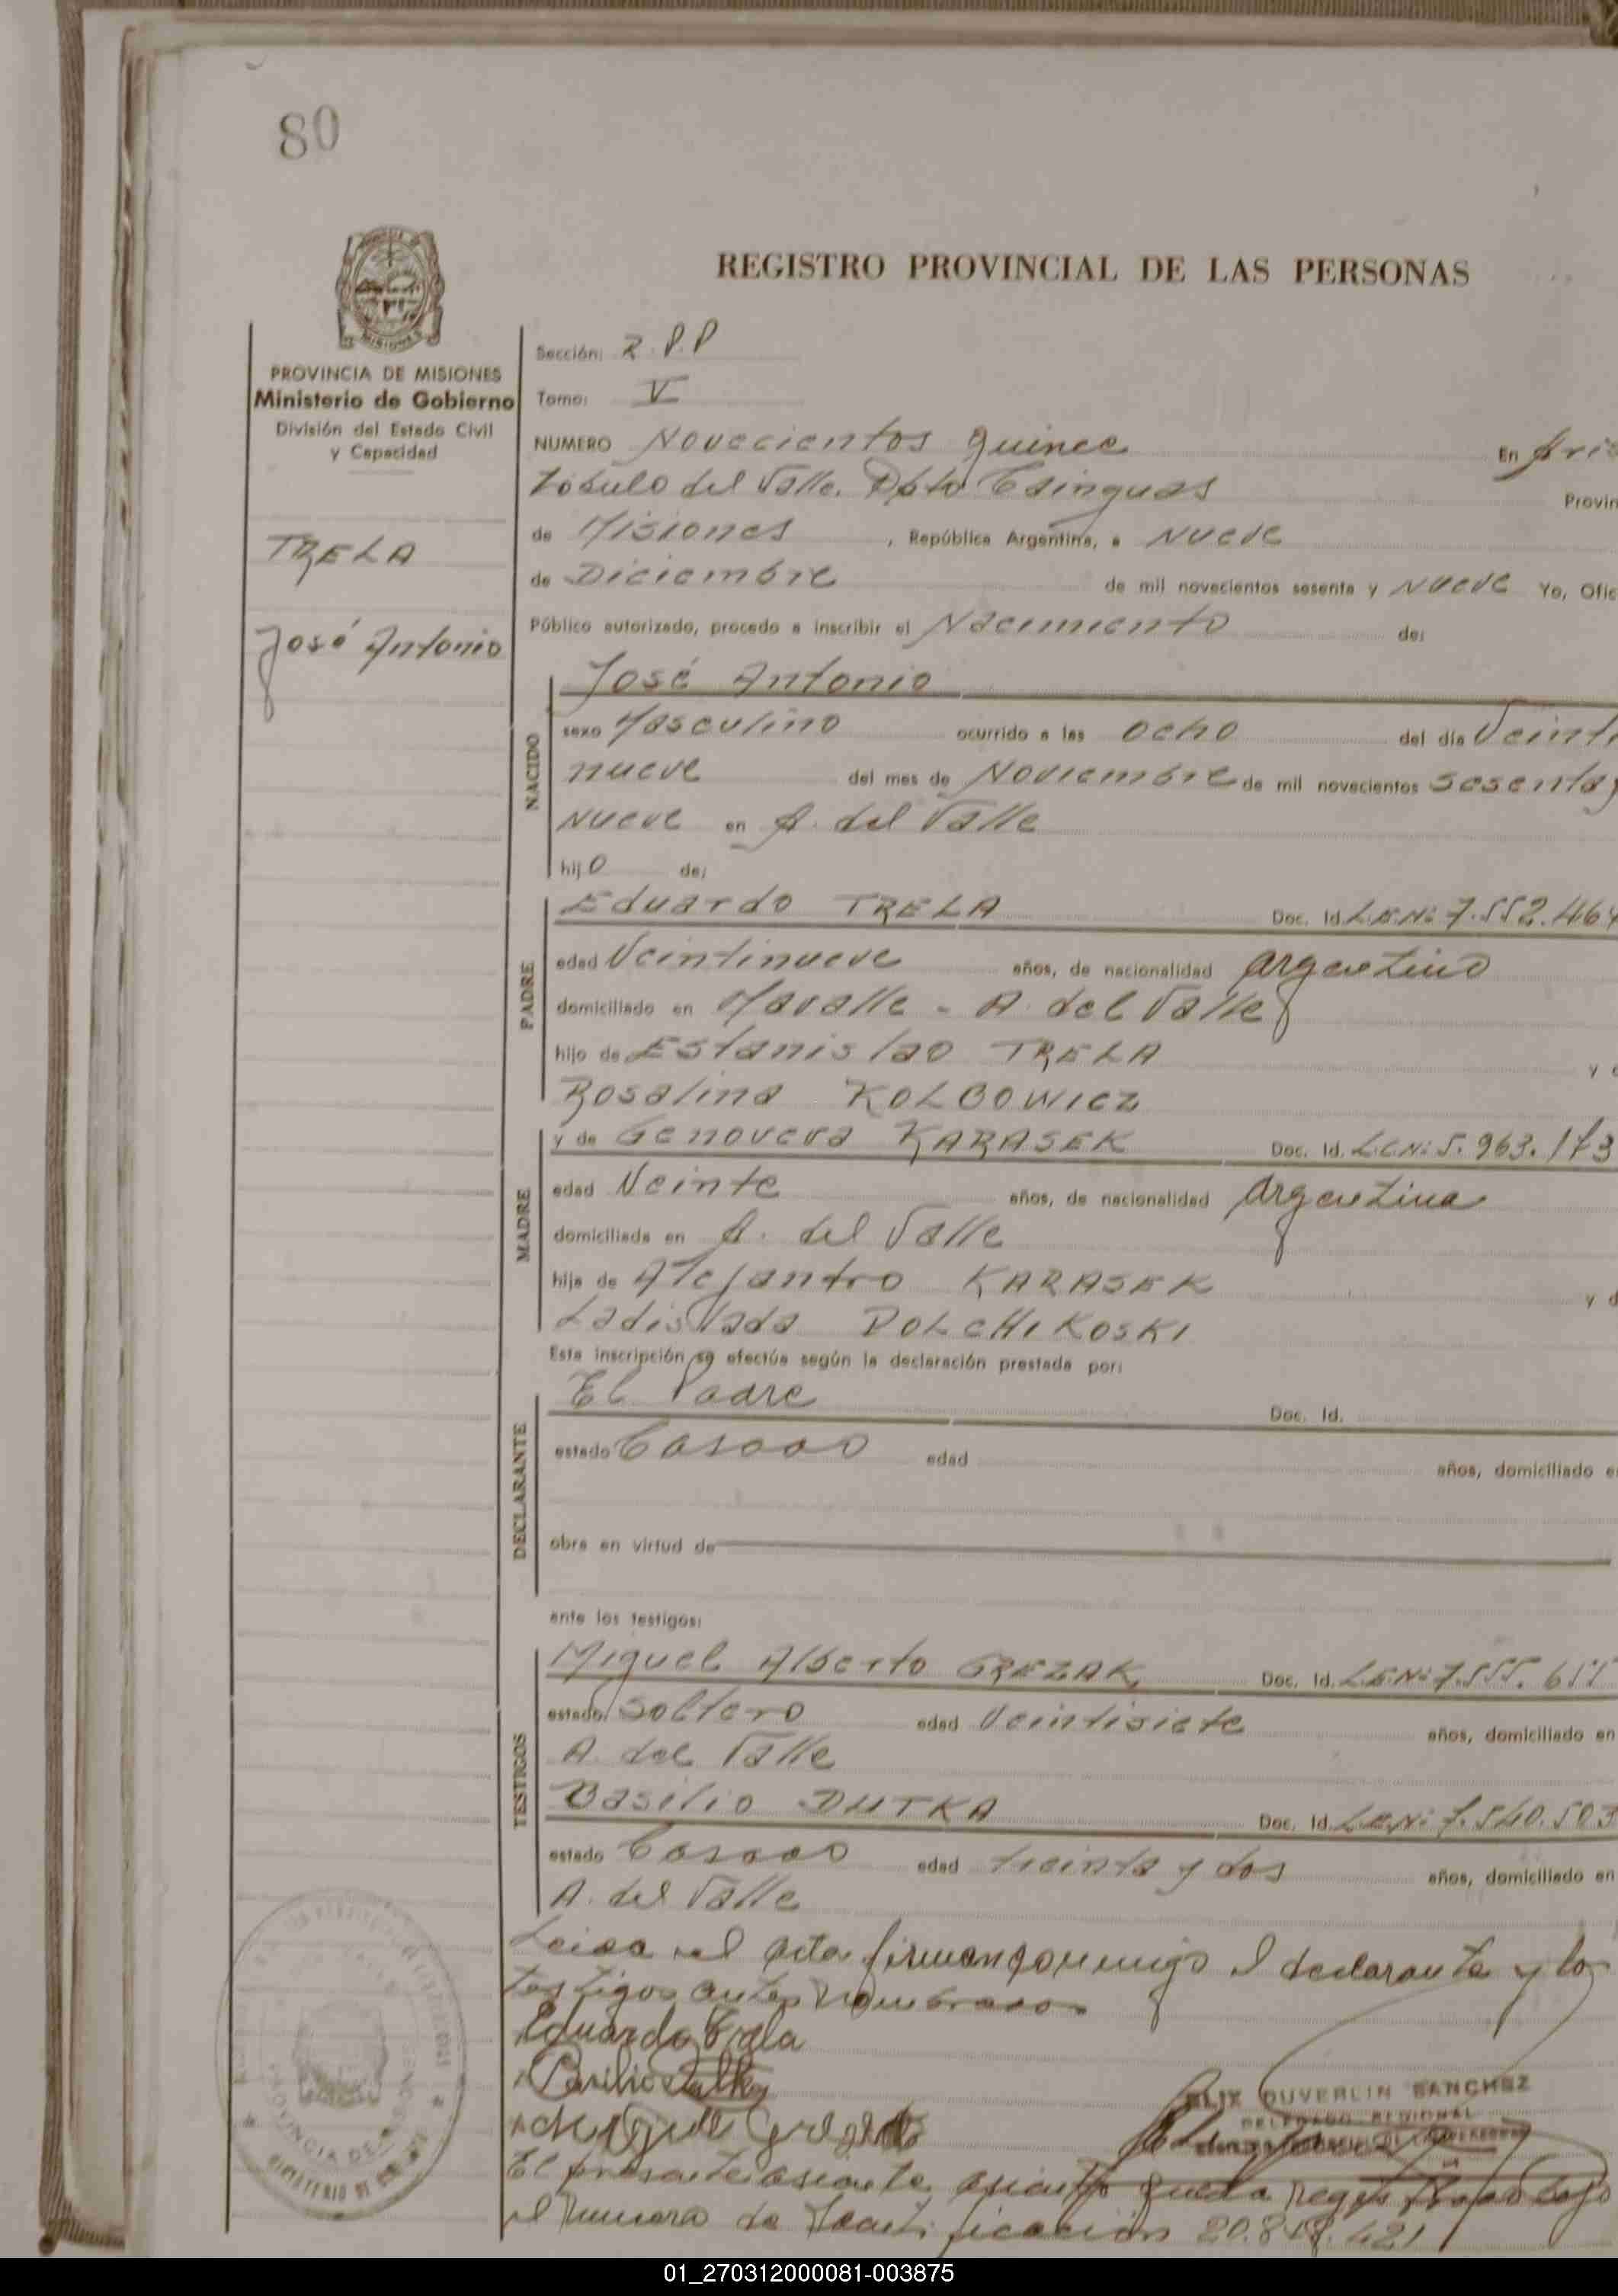 80
REGISTRO PROVINCIAL DE LAS PERSONAS
MISIONES
PROVINCIA DE MISIONES
Ministerio de Gobierno
División del Estado Civil
y Capacidad
TRELA
José Antonio
Sección: R.P.P
Tomo: V
NUMERO Novecientos quince En Aris
tóbulo del Valle. Dpto Cainguas Provin
de Misiones, República Argentina, a Nueve
de Diciembre de mil novecientos sesenta y Nueve Yo, Ofic
Público autorizado, procedo a inscribir el Nacimiento de:
NACIDO
José Antonio
sexo Masculino ocurrido a las ocho del día Veinti
nueve del mes de Noviembre de mil novecientos sesenta y
Nueve en A. del Valle
hijo de:
PADRE
Eduardo TRELA Doc. Id. L.E.N: 7.552.464
edad Veintinueve años, de nacionalidad argentino
domiciliado en Mavalle - A. del Valle
hijo de Estanislao TRELA y d
Rosalina KOLBOWICZ
MADRE
y de Genoveva KARASEK Doc. Id. L.C.N: 5.963.173
edad Veinte años, de nacionalidad argentina
domiciliada en A. del Valle
hija de Alejantro KARASEK y d
Ladislada DOLCHIKOSKI
Esta inscripción se efectúa según la declaración prestada por:
DECLARANTE
El Padre Doc. Id.
estado Casado edad años, domiciliado en
obra en virtud de
ante los testigos:
TESTIGOS
Miguel Alberto GREZAK Doc. Id. L.E.N: 7.555.655
estado Soltero edad Veintisiete años, domiciliado en
A. del Valle
Basilio DUTKA Doc. Id. L.E.N: 7.540.503
estado Casado edad treinta y dos años, domiciliado en
A. del Valle
Leida el acta firman conmigo el declarante y los
testigos antes nombrados
Eduardo Trela
Basilio Dutka
ELIX DUVERLIN SANCHEZ
DELEGADO REGIONAL
El presente asiento queda registrado bajo
el numero de Identificación 20.8 421
PROVINCIA DE
MINISTERIO DE
01_270312000081-003875